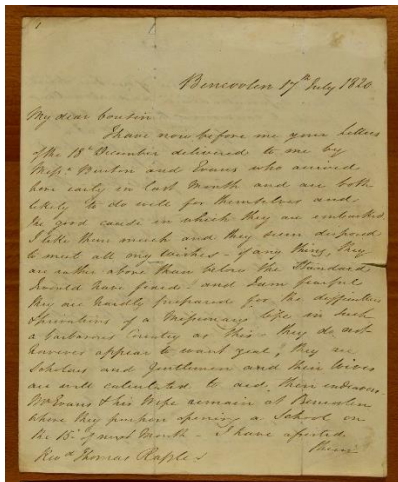 Bencoolen 17th July 1820
My dear Cousin
I have now before me your letters
of the 18th December delivered to me by
Messrs Burton and Evans who arrived
here early in last Month and are both
likely to do well for themselves and
the good cause in which they are embarked
I like them much and they seem disposed
to meet all my wishes - if any thing, they
are rather above than below the Standard
I would have fixed - and I am fearful
they are hardly prepared for the difficulties
& privations of a Missionary life in such
a barbarous Country as this - they do not
however appear to want zeal, they are
Scholars and Gentlemen and their Wives
are well calculated to aid their endeavours
Mr Evans & his Wife remain at Bencoolen
where they purpose opening a School on
the of next Month - I have assisted
them
Revd Thomas Raffles